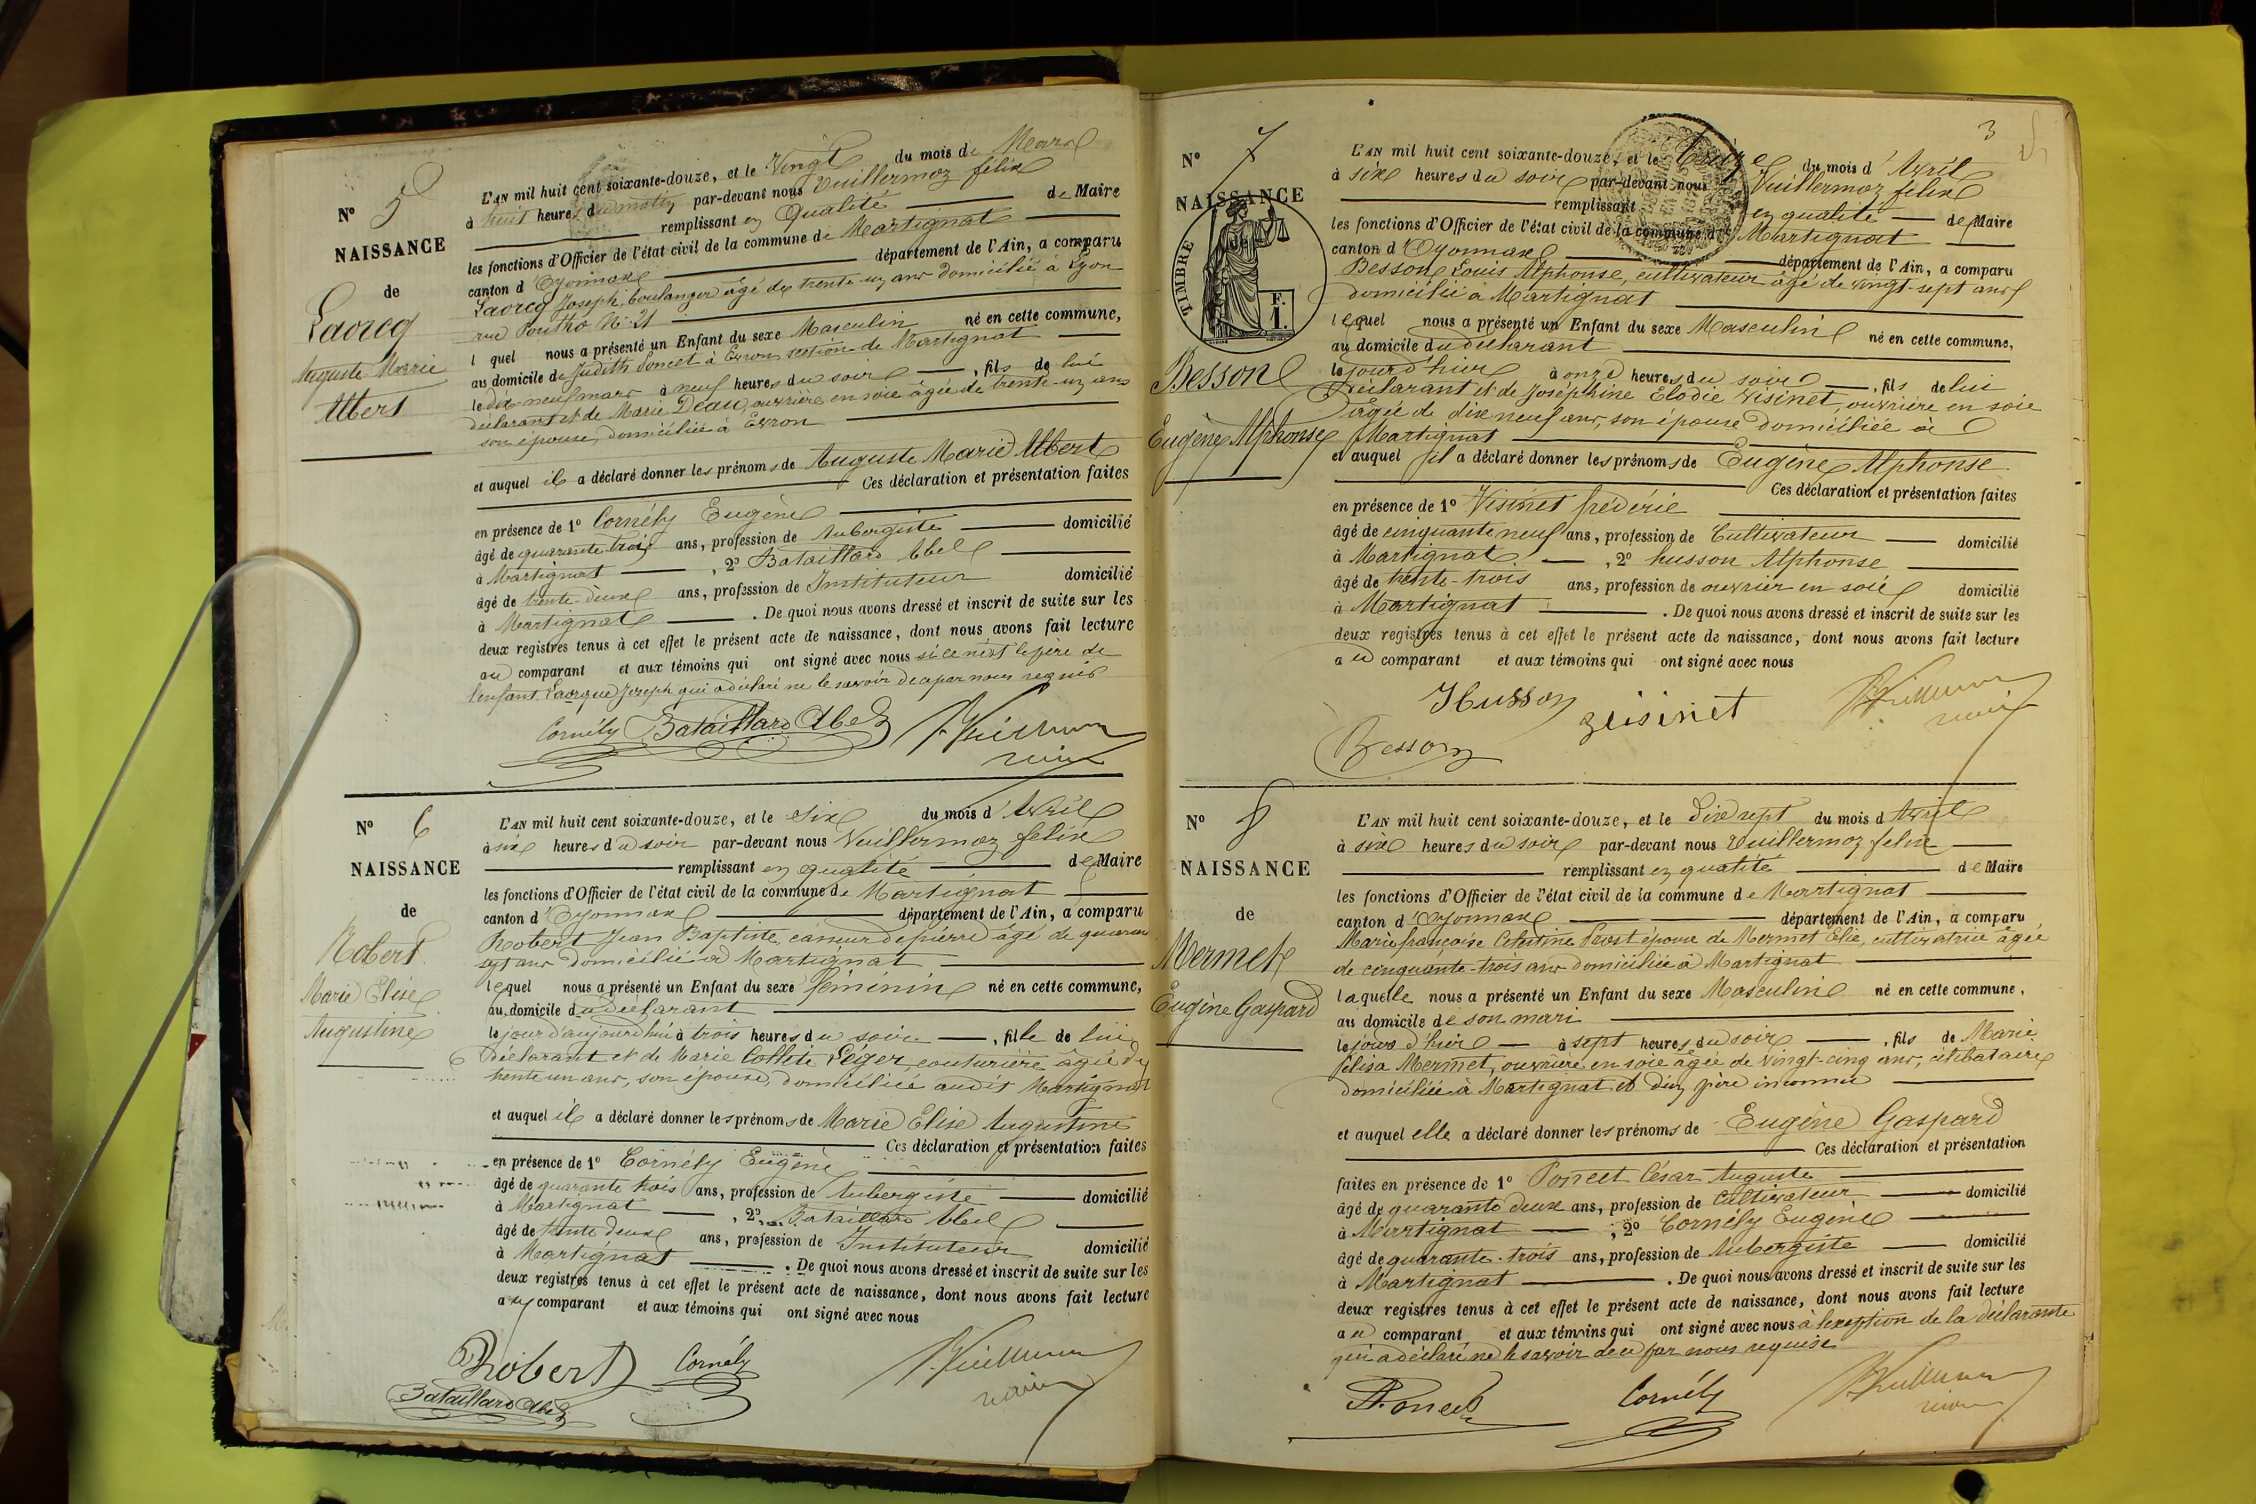 Nº 5
NAISSANCE
de
Lacrcq
Auguste Marie
Albert
L'AN mil huit cent soixante-douze, et le Vingt du mois de Mars
à huit heures du matin par-devant nous Vuillermoz félix
remplissant en Qualité de Maire
les fonctions d'Officier de l'état civil de la commune de Martignat
canton d'Oyonnax département de l'Ain, a comparu
Joseph boulanger âgé de trente un ans domicilié à Lyon
rue Nº 21
lequel nous a présenté un Enfant du sexe Masculin né en cette commune,
au domicile de Judith Poncet à Evron section de Martignat
le dix neuf mars à neuf heures du soir, fils de lui
déclarant et de Marie Deau, ouvrière en soie âgée de trente-un ans
son épouse, domiciliée à Evron
et auquel il a déclaré donner les prénoms de Auguste Marie Albert
Ces déclaration et présentation faites
en présence de 1º Cornély Eugène
âgé de quarante trois ans, profession de Aubergiste domicilié
à Martignat, 2º Bataillard Abel
âgé de trente-deux ans, profession de Instituteur domicilié
à Martignat. De quoi nous avons dressé et inscrit de suite sur les
deux registres tenus à cet effet le présent acte de naissance, dont nous avons fait lecture
au comparant et aux témoins qui ont signé avec nous si ce n'est le père de
l'enfant Joseph qui a déclaré ne le savoir de ce par nous requis
Cornély Bataillard Abel F. Vuillermoz
maire
Nº 6
NAISSANCE
de
Robert
Marie Elise
Augustine
L'AN mil huit cent soixante-douze, et le six du mois d'Avril
à six heures du soir par-devant nous Vuillermoz félix
remplissant en qualité de Maire
les fonctions d'Officier de l'état civil de la commune de Martignat
canton d'Oyonnax département de l'Ain, a comparu
Robert Jean Baptiste, casseur de pierre âgé de quarante
ans domicilié à Martignat
lequel nous a présenté un Enfant du sexe féminin né en cette commune,
au domicile du déclarant
le jour d'aujourd'hui à trois heures du soir, fille de lui
déclarant et de Marie Léger, couturière âgée de
trente un ans, son épouse, domiciliée audit Martignat
et auquel il a déclaré donner les prénoms de Marie Elise Augustine
Ces déclaration et présentation faites
en présence de 1º Cornély Eugène
âgé de quarante trois ans, profession de Aubergiste domicilié
à Martignat, 2º Bataillard Abel
âgé de trente deux ans, profession de Instituteur domicilié
à Martignat. De quoi nous avons dressé et inscrit de suite sur les
deux registres tenus à cet effet le présent acte de naissance, dont nous avons fait lecture
au comparant et aux témoins qui ont signé avec nous
Robert Cornély F. Vuillermoz
Bataillard Abel maire
3
Nº 7
NAISSANCE
TIMBRE
F.
1.
Besson
Eugène Alphonse
L'AN mil huit cent soixante-douze, et le treize du mois d'Avril
à six heures du soir par-devant nous Vuillermoz félix
remplissant en qualité de Maire
les fonctions d'Officier de l'état civil de la commune de Martignat
canton d'Oyonnax département de l'Ain, a comparu
Besson Louis Alphonse, cultivateur âgé de vingt-sept ans
domicilié à Martignat
lequel nous a présenté un Enfant du sexe Masculin né en cette commune,
au domicile du déclarant
le jour d'hier à onze heures du soir, fils de lui
déclarant et de Joséphine Elodie Visinet, ouvrière en soie
âgée de dix neuf ans, son épouse domiciliée à
Martignat
et auquel il a déclaré donner les prénoms de Eugène Alphonse
Ces déclaration et présentation faites
en présence de 1º Visinet frédéric
âgé de cinquante neuf ans, profession de Cultivateur domicilié
à Martignat, 2º husson Alphonse
âgé de trente-trois ans, profession de ouvrier en soie domicilié
à Martignat. De quoi nous avons dressé et inscrit de suite sur les
deux registres tenus à cet effet le présent acte de naissance, dont nous avons fait lecture
au comparant et aux témoins qui ont signé avec nous
Husson visinet F. Vuillermoz
Besson maire
Nº 8
NAISSANCE
de
Mermet
Eugène Gaspard
L'AN mil huit cent soixante-douze, et le Dix sept du mois d'Avril
à six heures du soir par-devant nous Vuillermoz félix
remplissant en qualité de Maire
les fonctions d'Officier de l'état civil de la commune de Martignat
canton d'Oyonnax département de l'Ain, a comparu
Marie françoise Célestine Prost épouse de Mermet Elie, cultivatrice âgée
de cinquante-trois ans domiciliée à Martignat
laquelle nous a présenté un Enfant du sexe Masculin né en cette commune,
au domicile de son mari
le jour d'hier à sept heures du soir, fils de Marie
félisa Mermet, ouvrière en soie âgée de vingt-cinq ans, célibataire
domiciliée à Martignat et d'un père inconnu
et auquel elle a déclaré donner les prénoms de Eugène Gaspard
Ces déclaration et présentation
faites en présence de 1º Poncet César Auguste
âgé de quarante deux ans, profession de Cultivateur domicilié
à Martignat, 2º Cornély Eugène
âgé de quarante-trois ans, profession de Aubergiste domicilié
à Martignat. De quoi nous avons dressé et inscrit de suite sur les
deux registres tenus à cet effet le présent acte de naissance, dont nous avons fait lecture
au comparant et aux témoins qui ont signé avec nous à l'exception de la déclarante
qui a déclaré ne le savoir de ce par nous requise
Poncet Cornély F. Vuillermoz
maire